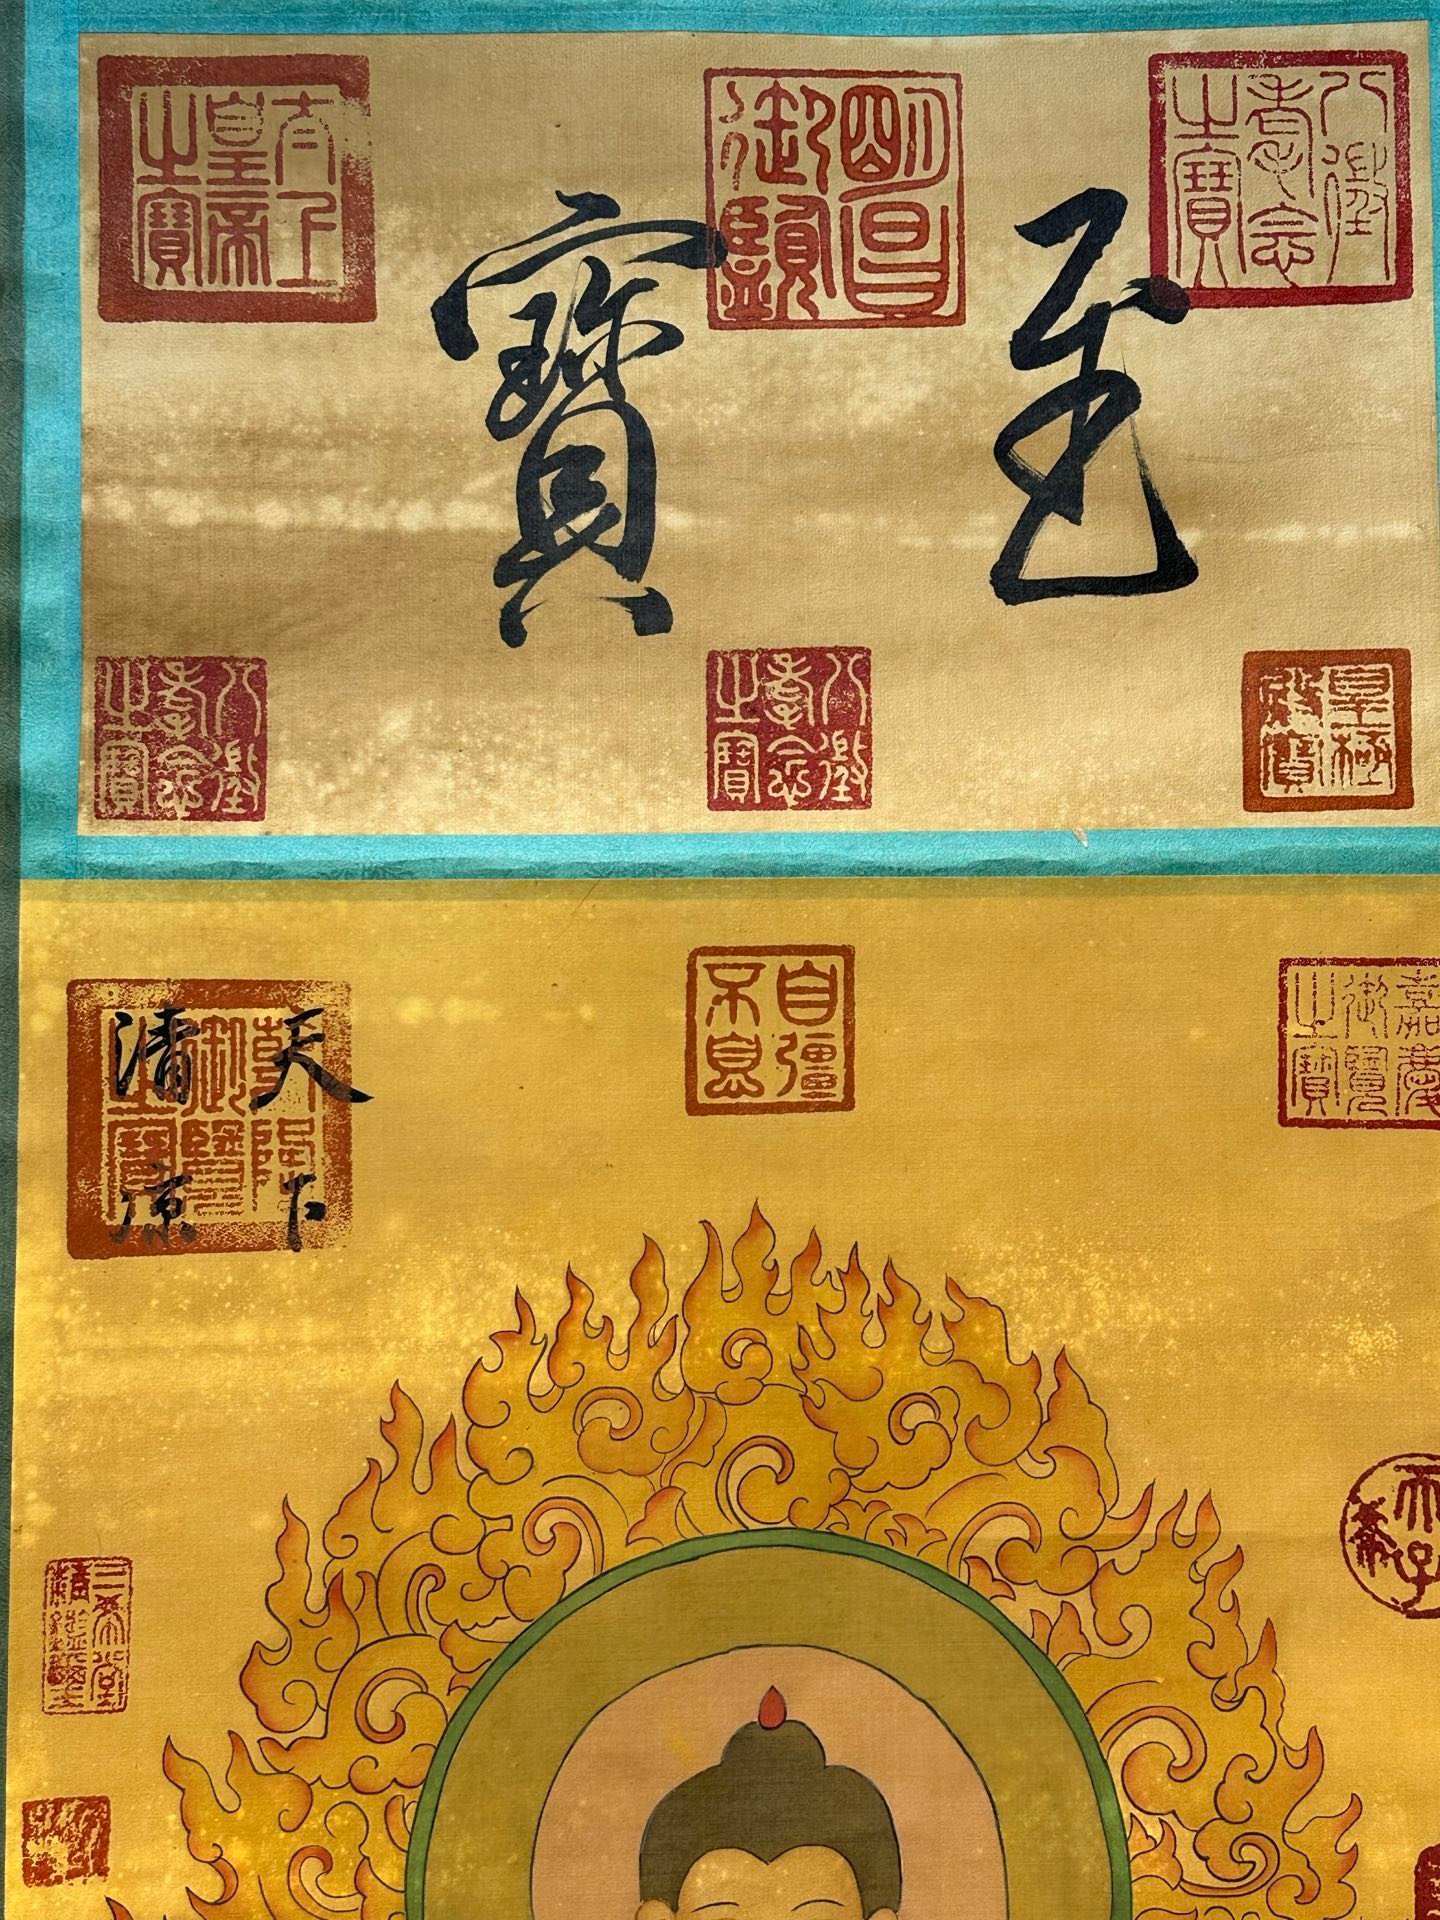 至寶
八徵耄念之寶
明昌御覽
太上皇帝之寶
皇極之寶
八徵耄念之寶
八徵耄念之寶
嘉慶御覽之寶
自彊不息
乾隆御覽之寶
天下
清涼
天子
三希堂精鑑璽